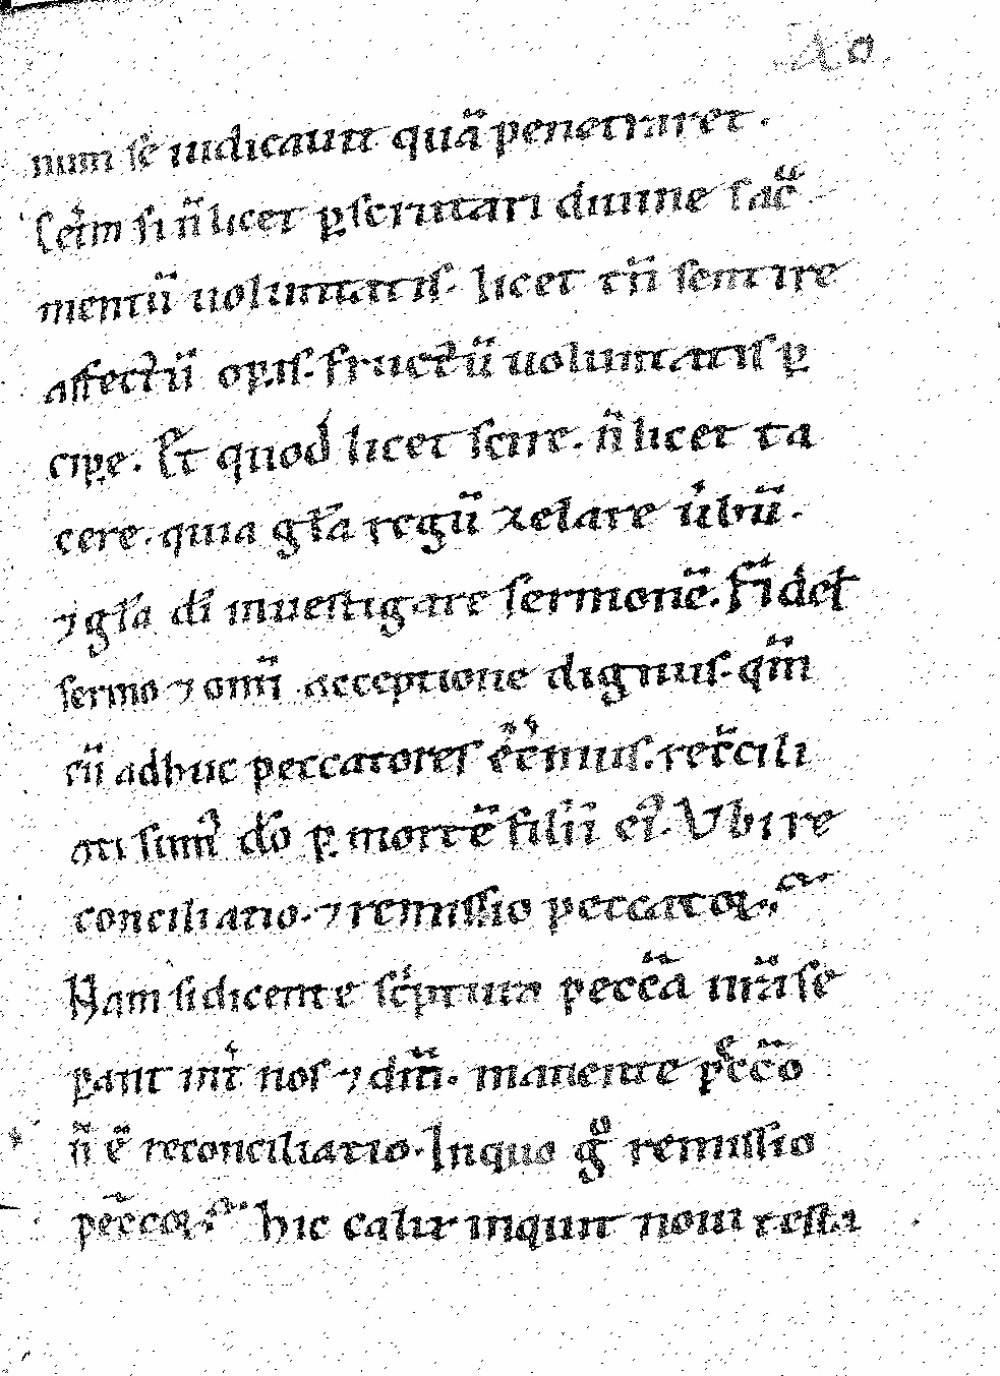 num se iudicauit quā penetraret.
Ceťm si n̄ licet ꝑscrutari diuine sac̄
mentū uoluntatis. licet tn̄ sentire
affectū oꝑis. fructū uoluntatis ꝑ
ciꝑe. Et quod licet scire. n̄ licet ta
cere. quia gl̄a regū zelare u̇bū.
⁊ gl̄a dī inuestigare sermonē. Fidel̄
sermo ⁊ om̄i acceptione dignus. qm̄
cū adhuc peccatores eēmus. recc̄ili
ati sumꝰ dō ꝑ mortē filii eiꝰ. Ubi re
conciliatio. ⁊ remissio peccatoꝝ.
Nam si dicente sc̓ptura pecc̄a nr̄a se
ꝑant int̓ nos ⁊ dm̄. manente pecc̄o
n̄ ē reconciliatio. In quo gͦ remissio
pecc̄oꝝ. hic calix inquit noui testa